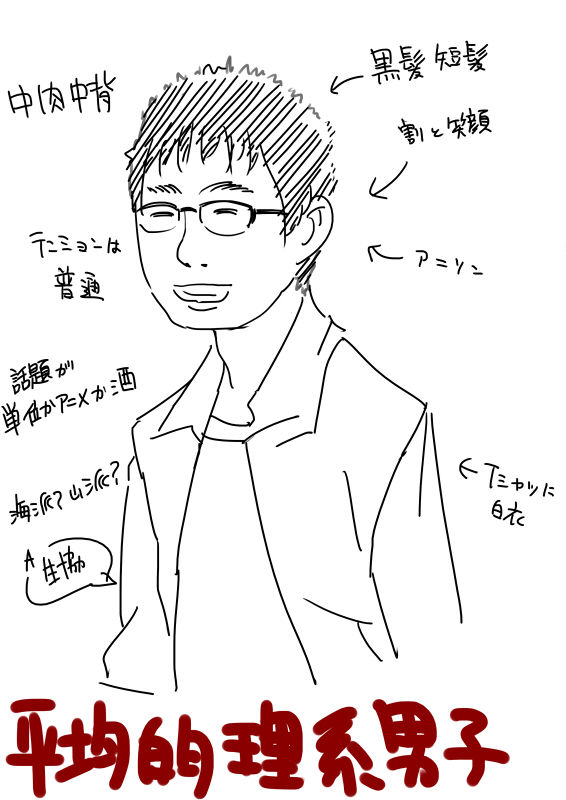 中肉中背
黒髪短髪
割と笑顔
テンションは
普通
アニソン
話題が
単位かアニメか酒
Tシャツに
白衣
海派?山派?
A
生協
平均的理系男子